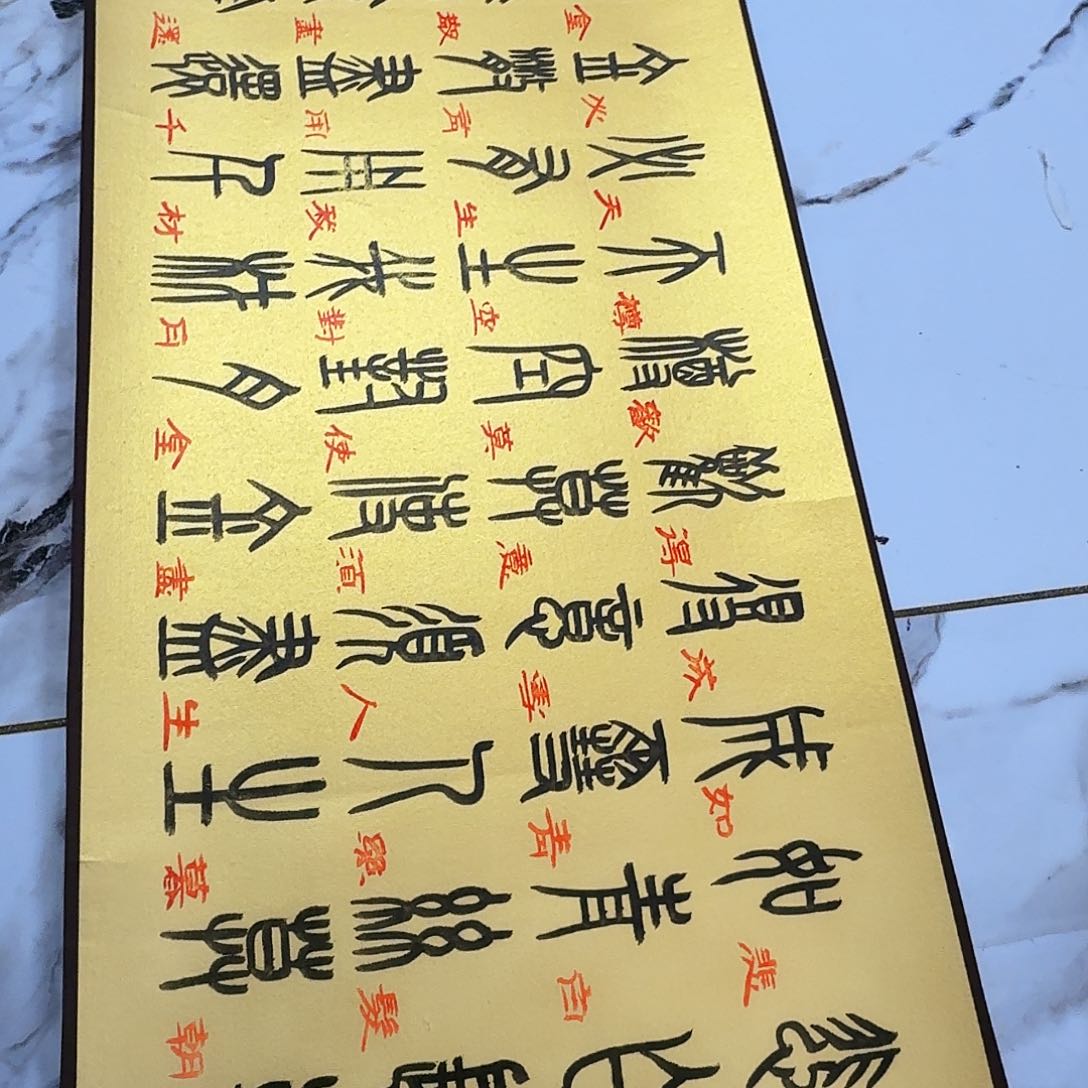 悲白髮朝
如青絲暮
成雪人生
得意須盡
歡莫使金
樽空對月
天生我材
必有用千
金散盡還